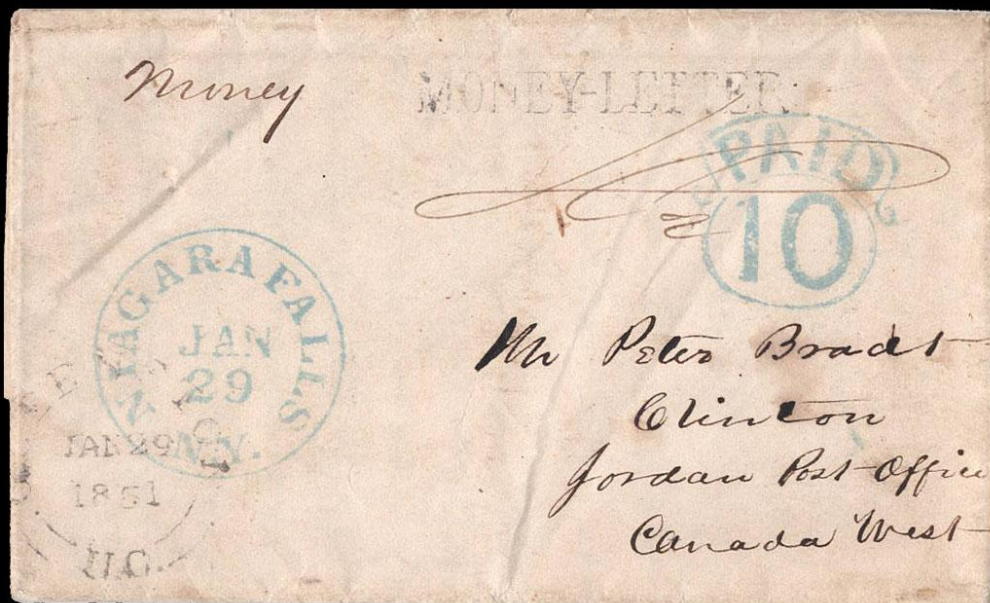 Money
MONEY-LETTER.
PAID
10
NIAGARA FALLS
JAN
29
N.Y.
JAN 29
1851
U.C.
Mr Peter Bradt
Clinton
Jordan Post Office
Canada West